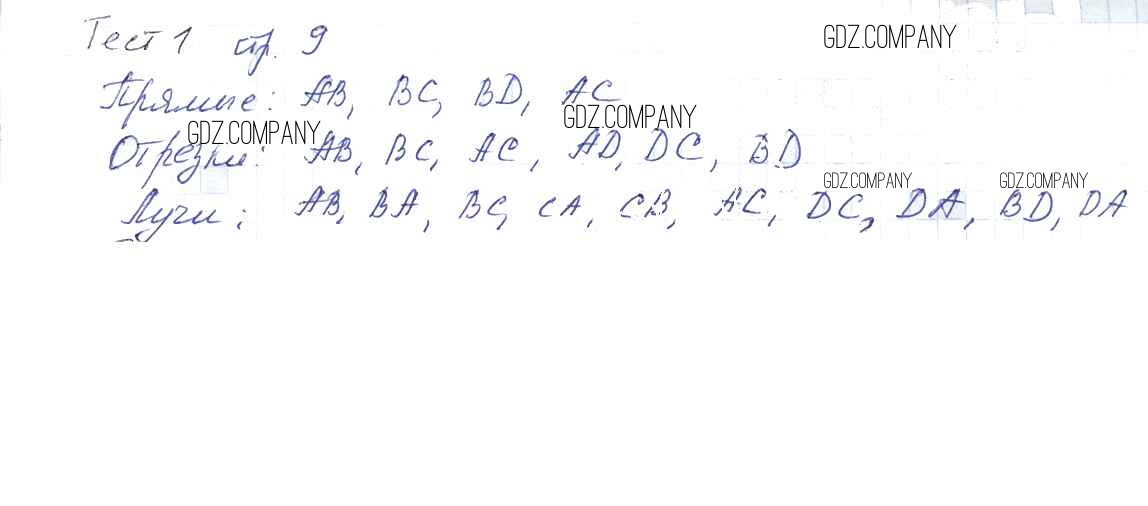 Тест 1 стр. 9
GDZ.COMPANY
Прямые: AB, BC, BD, AC
GDZ.COMPANY GDZ.COMPANY
Отрезки: AB, BC, AC, AD, DC, BD
GDZ.COMPANY GDZ.COMPANY
Лучи: AB, BA, BC, CA, CB, AC, DC, DA, BD, DA